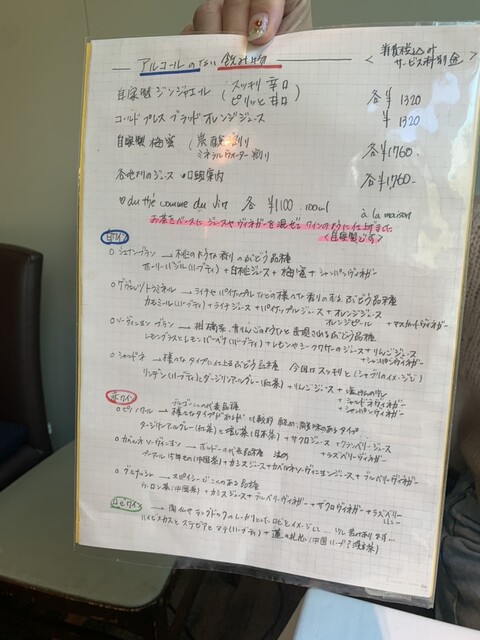 アルコールのない飲み物
< 消費税込み サービス料別途 >
自家製 ジンジャエール ( スッキリ 辛口 各¥1320
ピリッと 甘口
コールドプレス ブラッドオレンジジュース ¥1320
自家製 梅蜜 ( 炭酸割り 各¥1760
ミネラルウォーター割り
のジュース 口頭案内 各¥1760
♡ du thé comme du vin 各 ¥1100 100ml à la maison
お茶をベースに ジュースやヴィネガーを混ぜて ワインのように仕上げました
<自家製です>
白ワイン
○シュナンブラン → 桃のような香りのぶどう品種
ホーリーバジル(ハーブティ) + 白桃ジュース + 梅蜜 + シャンパンヴィネガー
○ゲヴュルツトラミネル → ライチやパイナップルなどの様々な香りのあるぶどう品種
カモミール(ハーブティ) + ライチジュース + パイナップルジュース + オレンジジュース
オレンジピール + マスカットヴィネガー
○ソーヴィニヨン ブラン → 柑橘系、青りんごのようと表現されるぶどう品種
レモングラスとレモンバーベナ(ハーブティ) + レモンやシークワサーのジュース + りんごジュース
+ シャンパンヴィネガー
○シャルドネ → 様々なタイプに仕上るぶどう品種 今回はスッキリと(シャブリのイメージ)
リンデン(ハーブティ)とダージリンアールグレー(紅茶) + りんごジュース +
+ シャルドネヴィネガー
+ シャンパンヴィネガー
赤ワイン
ブルゴーニュの代表品種
○ピノノワール → 様々なタイプ 比較的 酸味のあるタイプ
ダージリンアールグレー(紅茶)とほうじ茶(日本茶) + ザクロジュース + クランベリージュース
+ ラズベリーヴィネガー
○カベルネソーヴィニヨン → ボルドーの代表品種
プーアール (中国茶) + カシスジュース + カベルネソーヴィニヨンジュース + ブルーベリーヴィネガー
○グルナッシュ → スパイシーな品種
ウーロン茶(中国茶) + カシスジュース + ブルーベリーヴィネガー + ザクロヴィネガー + ラズベリー
ロゼワイン
→ ラングドックのしっかりとしたロゼをイメージし
ハイビスカスとステビアとマテ(ハーブティ) + 蓮の